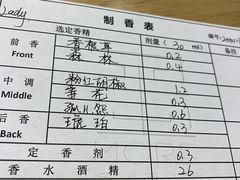 Lady
制 香 表 编号:
选定香精 剂量( 30 ml)
前 香 香根草 0.2
Front 森林 0.4
中 调 粉红胡椒 1.2
Middle 0.3
后 香 0.6
Back 琥珀 0.3
定 香 剂 0.3
香 水 酒 精 26